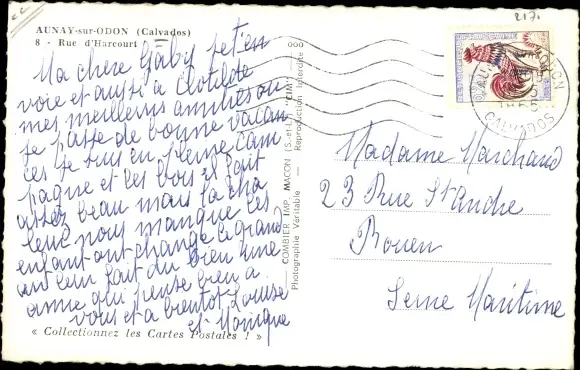 217.
AUNAY-sur-ODON (Calvados)
8 - Rue d'Harcourt
Ma chere Gaby je t'en
voie et aussi a Clotilde
mes meilleures amities ou
je passe de bonne vacan
ces je suis en pleine cam
pagne et les bois il fait
assez beau mais la cha
leur nous manque les
enfant ont change le grand
air leur fait du bien une
amie qui pense bien a
vous et a bientot Louise
et Monique
« Collectionnez les Cartes Postales ! »
COMBIER IMP. MACON (S.-et-L.) "CIM"
Photographie Véritable - Reproduction Interdite
CALVADOS
Madame Marchand
23 Rue St Andre
Rouen
Seine Maritime